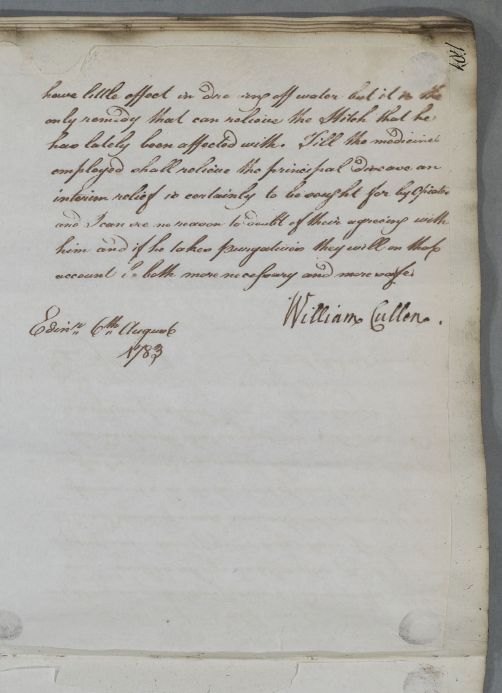 104
have little effect in drawing off water but it is the
only remedy that can relieve the Stitch that he
has lately been affected with. Till the medicines
employed shall relieve the principal disease an
interim relief is certainly to be sought for by Opiates
and I can see no reason to doubt of their agreeing with
him and if he takes purgatives they will on that
account be both more necessary and more safe.
William Cullen.
Edinr. 6th. August
1783